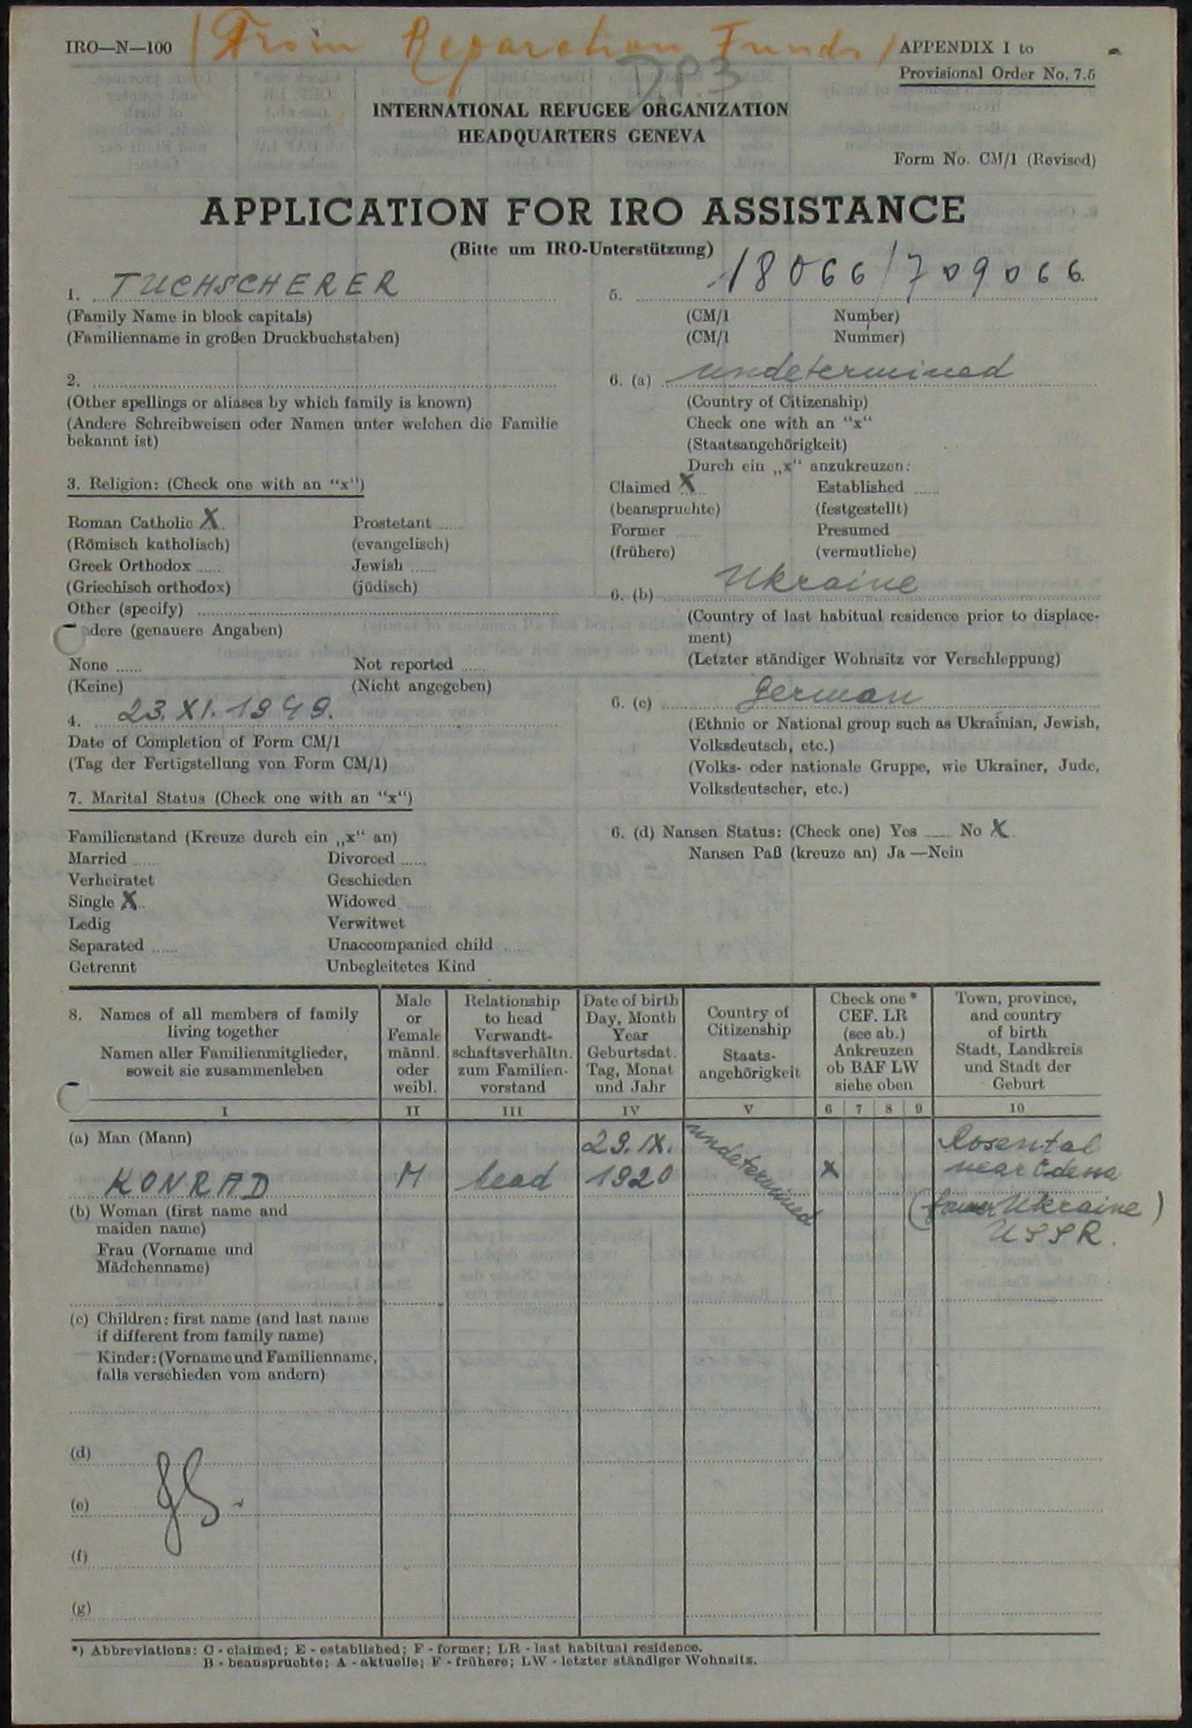 IRO—N—100
(From Reparation Funds)
D.P.3
APPENDIX I to
Provisional Order No. 7.5
INTERNATIONAL REFUGEE ORGANIZATION
HEADQUARTERS GENEVA
Form No. CM/1 (Revised)
APPLICATION FOR IRO ASSISTANCE
(Bitte um IRO-Unterstützung)
1. TUCHSCHERER
(Family Name in block capitals)
(Familienname in großen Druckbuchstaben)
2.
(Other spellings or aliases by which family is known)
(Andere Schreibweisen oder Namen unter welchen die Familie
bekannt ist)
3. Religion: (Check one with an “x“)
Roman Catholic X Prostetant
(Römisch katholisch) (evangelisch)
Greek Orthodox Jewish
(Griechisch orthodox) (jüdisch)
Other (specify)
dere (genauere Angaben)
None Not reported
(Keine) (Nicht angegeben)
4. 23. XI. 1949.
Date of Completion of Form CM/1
(Tag der Fertigstellung von Form CM/1)
7. Marital Status (Check one with an “x“)
Familienstand (Kreuze durch ein „x“ an)
Married Divorced
Verheiratet Geschieden
Single X Widowed
Ledig Verwitwet
Separated Unaccompanied child
Getrennt Unbegleitetes Kind
5. 18066/709066
(CM/1 Number)
(CM/1 Nummer)
6. (a) undetermined
(Country of Citizenship)
Check one with an “x“
(Staatsangehörigkeit)
Durch ein „x“ anzukreuzen:
Claimed X Established
(beanspruchte) (festgestellt)
Former Presumed
(frühere) (vermutliche)
6. (b) Ukraine
(Country of last habitual residence prior to displace-
ment)
(Letzter ständiger Wohnsitz vor Verschleppung)
6. (c) German
(Ethnic or National group such as Ukrainian, Jewish,
Volksdeutsch, etc.)
(Volks- oder nationale Gruppe, wie Ukrainer, Jude,
Volksdeutscher, etc.)
6. (d) Nansen Status: (Check one) Yes No X
Nansen Paß (kreuze an) Ja —Nein
8. Names of all members of family
living together
Namen aller Familienmitglieder,
soweit sie zusammenleben
Male
or
Female
männl.
oder
weibl.
Relationship
to head
Verwandt-
schaftsverhältn.
zum Familien-
vorstand
Date of birth
Day, Month
Year
Geburtsdat.
Tag, Monat
und Jahr
Country of
Citizenship
Staats-
angehörigkeit
Check one *
CEF. LR
(see ab.)
Ankreuzen
ob BAF LW
siehe oben
Town, province,
and country
of birth
Stadt, Landkreis
und Stadt der
Geburt
I II III IV V 6 7 8 9 10
(a) Man (Mann)
KONRAD M head 29. IX. 1920 undetermined x
Rosental
near Odessa
(former Ukraine)
USSR.
(b) Woman (first name and
maiden name)
Frau (Vorname und
Mädchenname)
(c) Children: first name (and last name
if different from family name)
Kinder: (Vorname und Familienname,
falls verschieden vom andern)
(d)
(e)
(f)
(g)
*) Abbreviations: C - claimed; E - established; F - former; LR - last habitual residence.
B - beanspruchte; A - aktuelle; F - frühere; LW - letzter ständiger Wohnsitz.